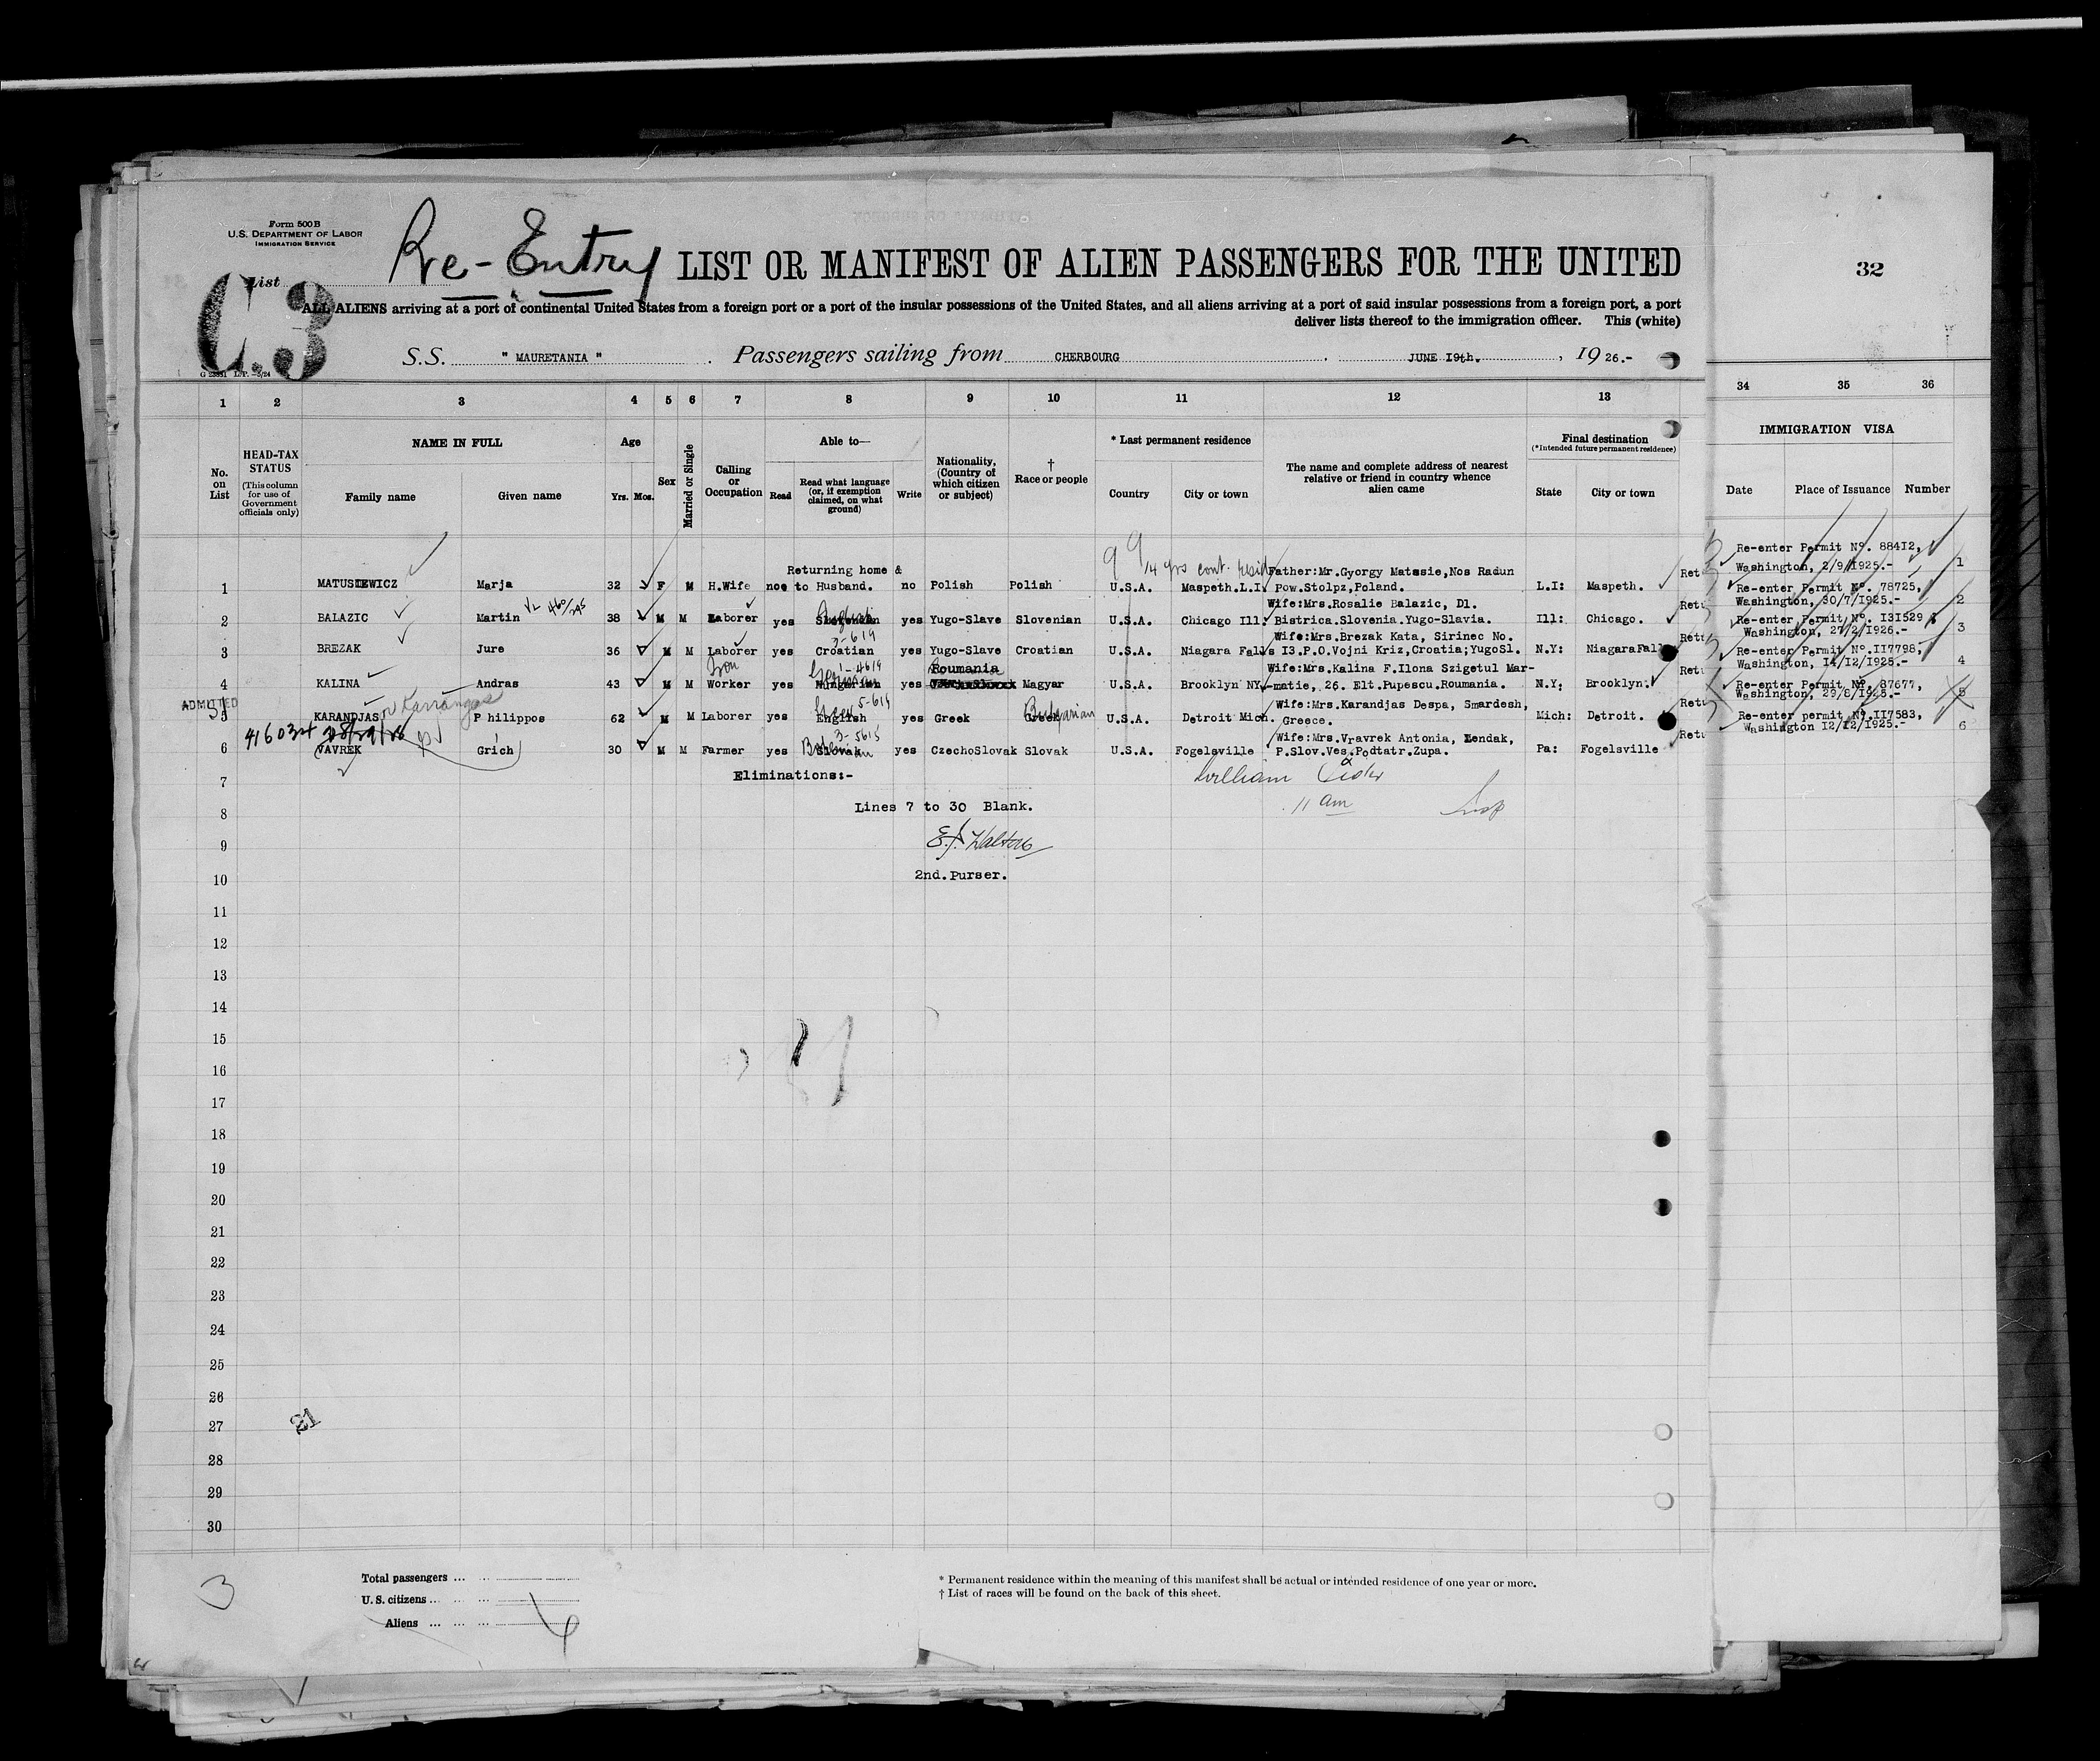 Form 500 B
U.S. DEPARTMENT OF LABOR
IMMIGRATION SERVICE
Re-Entry LIST OR MANIFEST OF ALIEN PASSENGERS FOR THE UNITED
32
List
C.3
ALL ALIENS arriving at a port of continental United States from a foreign port or a port of the insular possessions of the United States, and all aliens arriving at a port of said insular possessions from a foreign port, a port
deliver lists thereof to the immigration officer. This (white)
S.S. " MAURETANIA " . Passengers sailing from CHERBOURG . JUNE I9th. , 19 26.-
1 2 3 4 5 6 7 8 9 10 11 12 13 34 35 36
No. on List
HEAD-TAX STATUS
(This column for use of Government officials only)
NAME IN FULL
Family name Given name
Age
Yrs. Mos.
Sex
Married or Single
Calling or Occupation
Able to—
Read
Read what language (or, if exemption claimed, on what ground)
Write
Nationality, (Country of which citizen or subject)
† Race or people
* Last permanent residence
Country City or town
The name and complete address of nearest relative or friend in country whence alien came
Final destination
(*Intended future permanent residence)
State City or town
IMMIGRATION VISA
Date Place of Issuance Number
14 yrs cont. resid
Returning home & Father:Mr.Gyorgy Matssie,Nos Radun Ret Re-enter Permit No. 884I2,
1 MATUSIEWICZ Marja 32 F M H.Wife no to Husband. no Polish Polish U.S.A. Maspeth.L.I. Pow.Stolpz,Poland. L.I: Maspeth. Washington, 2/9/I925.- 1
Wife:Mrs.Rosalie Balazic, Dl. Retu Re-enter Permit No. 78725,
2 BALAZIC Martin 38 M M Laborer yes yes Yugo-Slave Slovenian U.S.A. Chicago Ill: Bistrica.Slovenia.Yugo-Slavia. Ill: Chicago. Washington, 30/7/I925.- 2
3-614 Wife:Mrs.Brezak Kata, Sirinec No. Retu Re-enter Permit No. I3I529
3 BREZAK Jure 36 M M Laborer yes Croatian yes Yugo-Slave Croatian U.S.A. Niagara Falls I3.P.O.Vojni Kriz,Croatia;YugoSl. N.Y: NiagaraFall Washington, 27/2/I926.- 3
Iron German 1-4614 Roumania Wife:Mrs.Kalina F.Ilona Szigetul Mar- Retu Re-enter Permit No.II7798,
4 KALINA Andras 43 M M Worker yes Hungarian yes Magyar U.S.A. Brooklyn NY. -matie, 26. Elt.Pupescu.Roumania. N.Y: Brooklyn. Washington, I4/I2/I925.- 4
ADMITTED or Karrangas 5-614 Bulgarian Wife:Mrs.Karandjas Despa, Smardesh, Retu Re-enter Permit No. 87677,
5 KARANDJAS Philippos 62 M M Laborer yes English yes Greek Greek U.S.A. Detroit Mich. Greece. Mich: Detroit. Washington, 29/8/I925.- 5
3-5615 Wife:Mrs.Vravrek Antonia, Zendak, Retu Re-enter permit No.II7583,
6 VAVREK Grich 30 M M Farmer yes Slovak yes CzechoSlovak Slovak U.S.A. Fogelsville P.Slov.Ves.Podtatr.Zupa. Pa: Fogelsville Washington I2/I2/I925.- 6
7 Eliminations:- William
8 Lines 7 to 30 Blank. 11 am Insp
9 E.J. Walters
10 2nd.Purser.
11
12
13
14
15
16
17
18
19
20
21
22
23
24
25
26
27 21
28
29
30
3
Total passengers ...
U.S. citizens ...
Aliens ... 6
* Permanent residence within the meaning of this manifest shall be actual or intended residence of one year or more.
† List of races will be found on the back of this sheet.